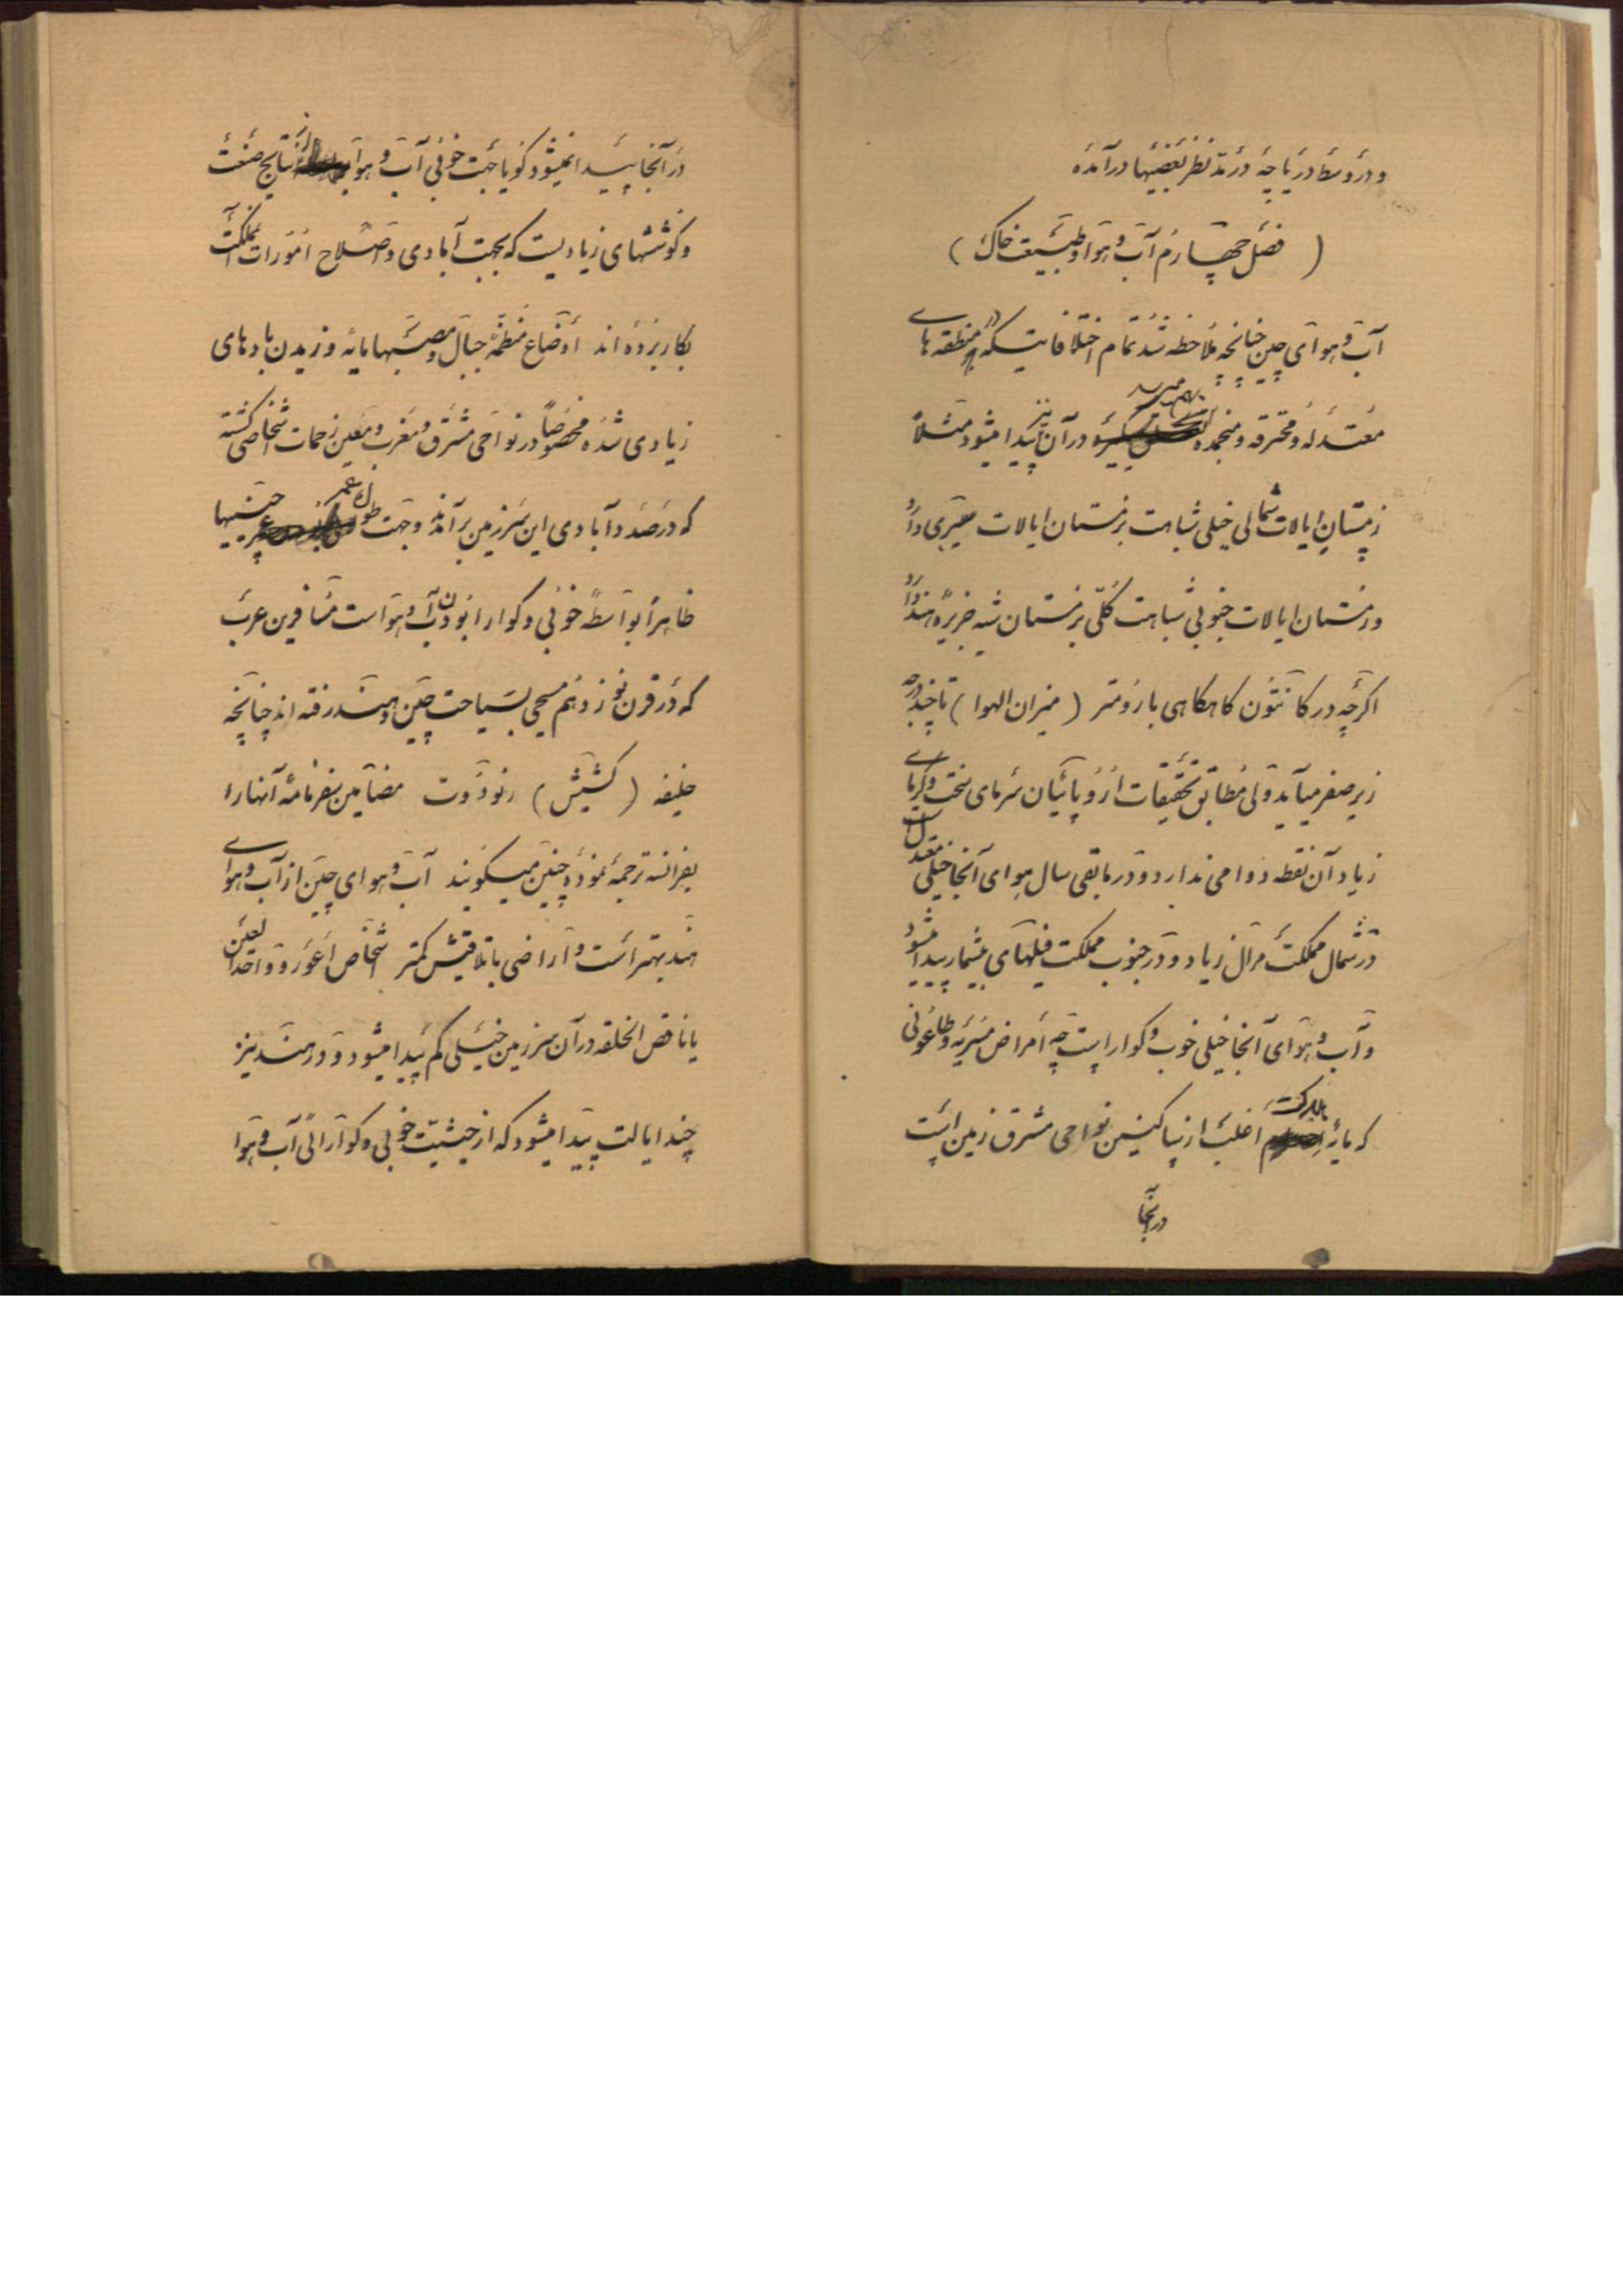 و در وسط دریاچه در مدّ نظر بعضیها در آمده
( فصل چهارم آب و هوا و طبیعت خاک )
آب و هوای چین چنانچه ملاحظه شد تمام اختلافاتیکه در منطقه های
معتدله و محترقه و منجمده بهم میرسد در آن نیز پیدا میشود مثلاً
زمستان ایالات شمالی خیلی شباهت بزمستان ایالات سیبری دارد
و زمستان ایالات جنوبی شباهت کلّی بزمستان شبه جزیره هند دارد
اگرچه در کانتون گاهگاهی بارومتر ( میزان الهوا ) تا چند درجه
زیر صفر میآید ولی مطابق تحقیقات اروپائیان سرمای سخت و گرمای
زیاد آن نقطه دوامی ندارد و در مابقی سال هوای آنجا خیلی معتدل است
در شمال مملکت مرال زیاد و در جنوب مملکت فیلهای بیشمار پیدا میشود
و آب و هوای آنجا خیلی خوب و گواراست چه امراض مسریه و طاعونی
که مایه هلاکت اغلب از ساکنین نواحی مشرق زمین است
در آنجا
در آنجا پیدا نمیشود گویا جهت خوبی آب و هوا از نتایج صنعت
و کوششهای زیادیست که بجهت آبادی و اصلاح امورات مملکت
بکار برده اند اوضاع منظمه جبال و مصبّها مایه وزیدن بادهای
زیادی شده مخصوصاً در نواحی مشرق و مغرب و معین زحمات اشخاصی گشته
که در صدد آبادی این سرزمین برآمده و جهت طول عمر چینیها
ظاهراً بواسطه خوبی و گوارا بودن آب و هواست مسافرین عرب
که در قرن نوزدهم مسیحی بسیاحت چین و هند رفته اند چنانچه
خلیفه ( کشیش ) رنودوت مضامین سفرنامه آنها را
بفرانسه ترجمه نموده چنین میگویند آب و هوای چین از آب و هوای
هند بهتر است و اراضی باتلاقیش کمتر اشخاص اعور و واحد العین
یا ناقص الخلقه در آن سرزمین خیلی کم پیدا میشود و در هند نیز
چند ایالت پیدا میشود که از حیثیّت خوبی و گوارائی آب و هوا